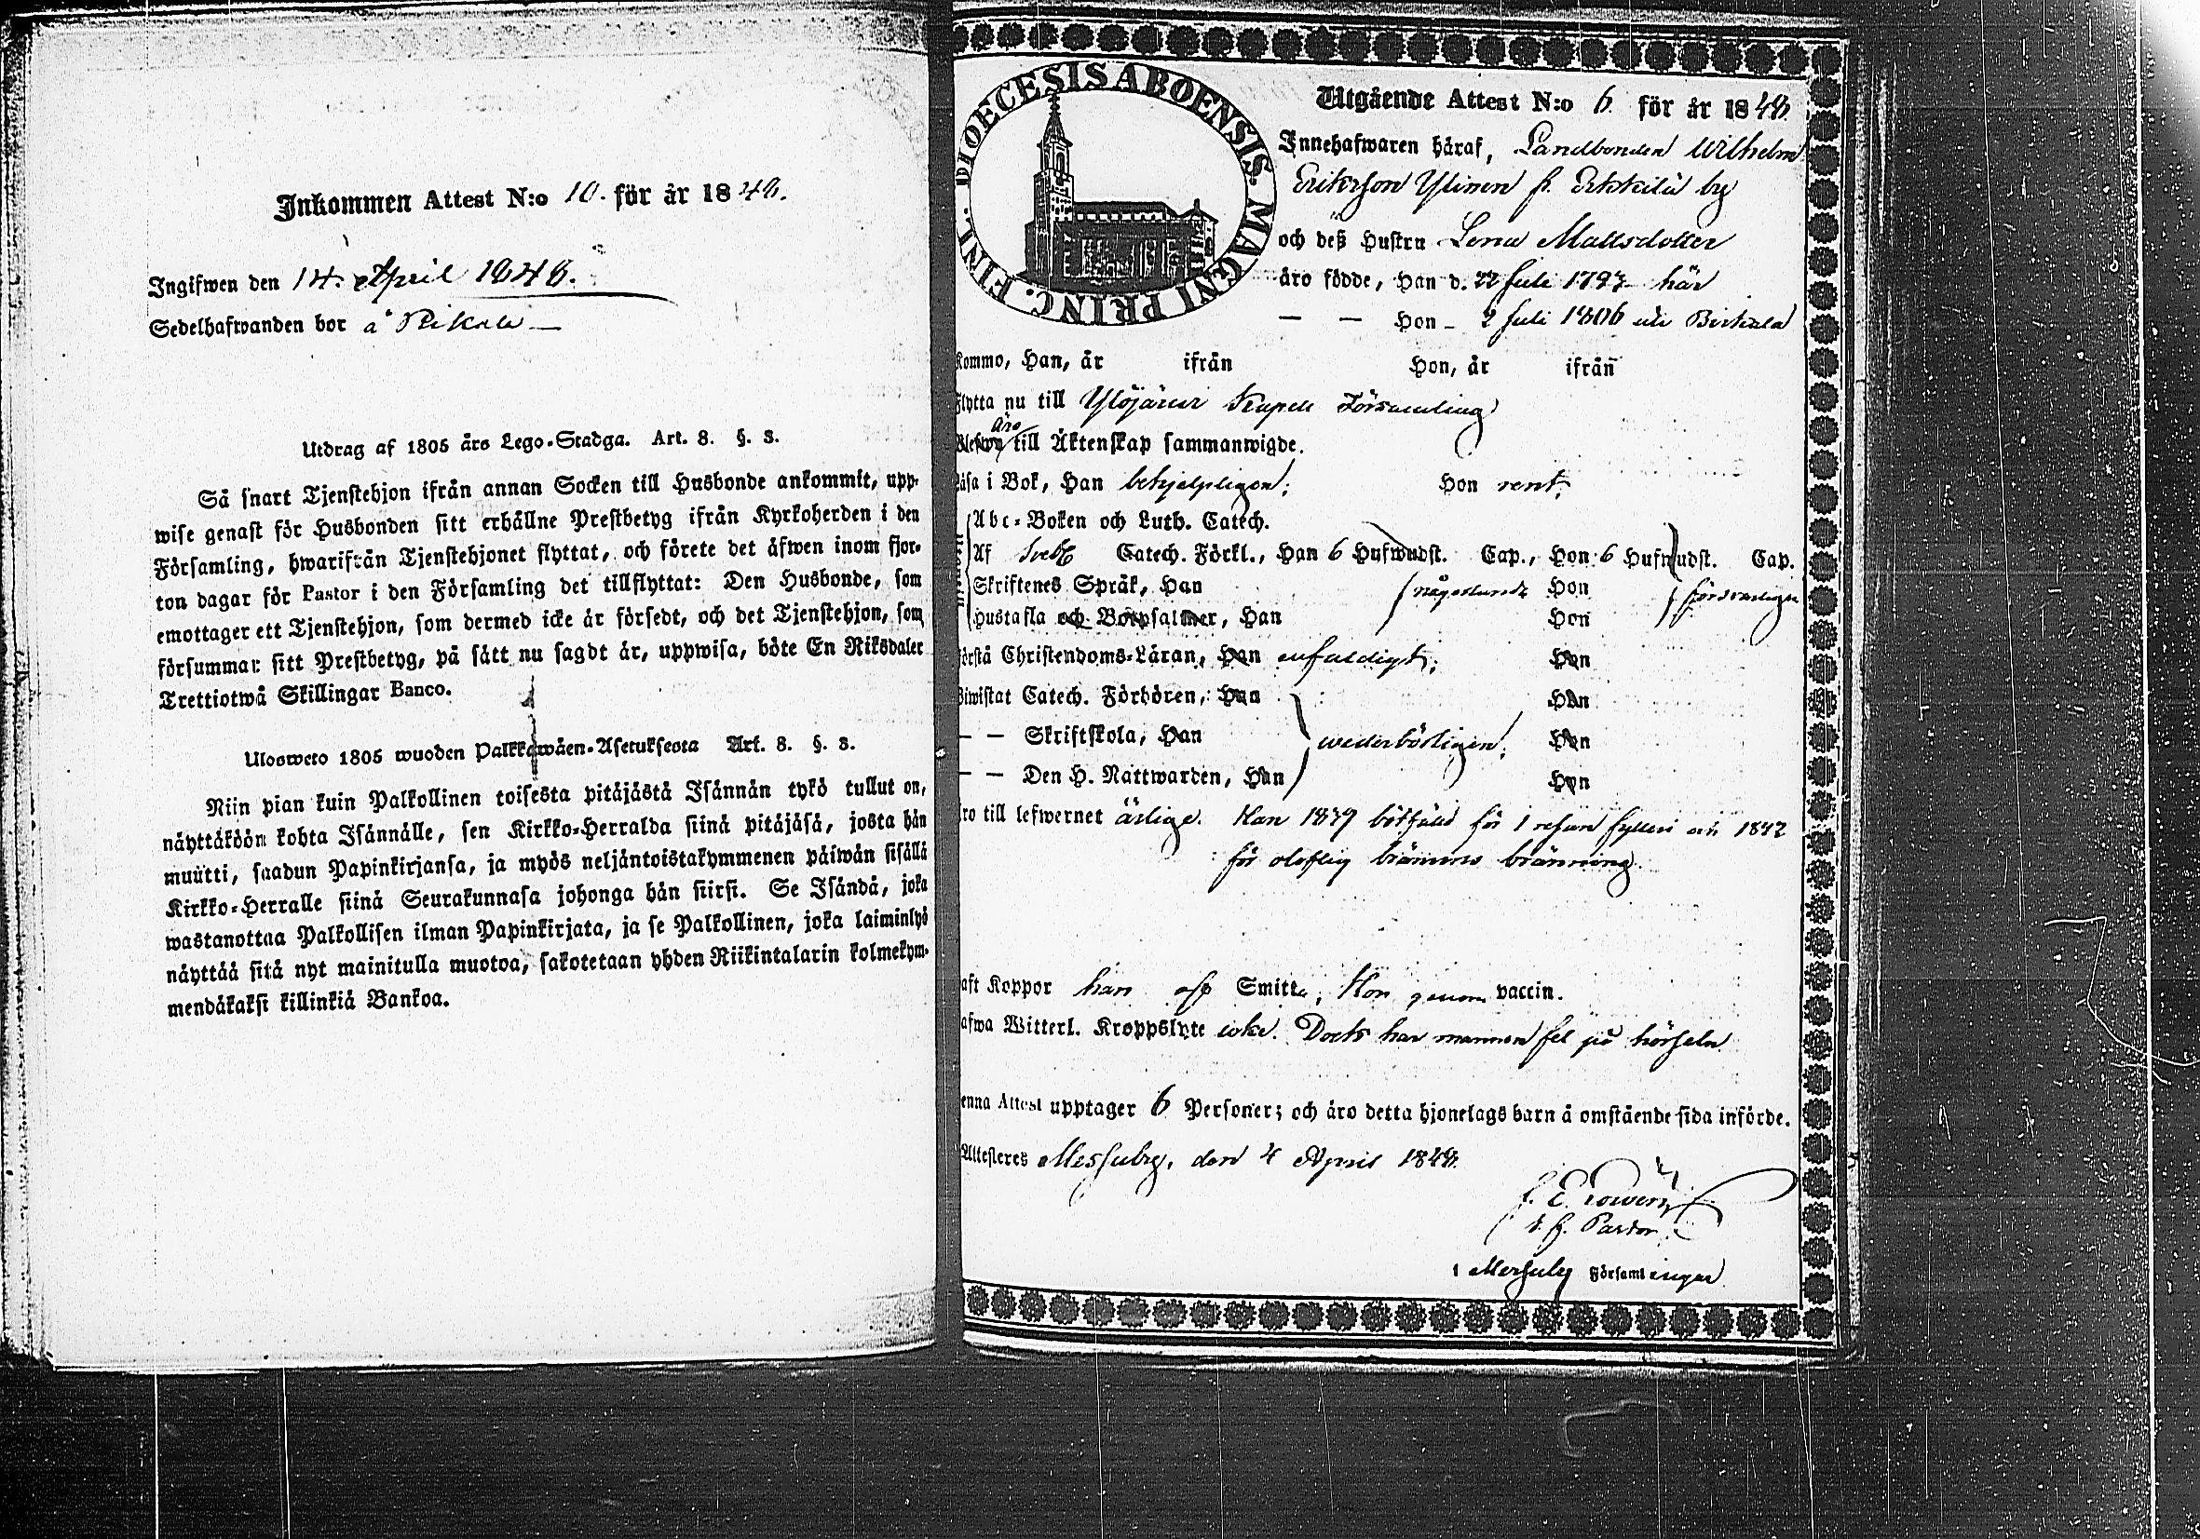 Inkommen Attest N:o 10. för år 1848.
Ingifwen den 14. April 1848.
Sedelhafwanden bor å
Utdrag af 1805 års Lego-Stadga. Art. 8. §. 3.
Så snart Tjenstehjon ifrån annan Socken till Husbonde ankommit, upp-
wise genast för Husbonden sitt erhållne Prestbetyg ifrån Kyrkoherden i den
Församling, hwarifrån Tjenstehjonet flyttat, och förete det äfwen inom fjor-
ton dagar för Pastor i den Församling det tillflyttat: Den Husbonde, som
emottager ett Tjenstehjon, som dermed icke är försedt, och det Tjenstehjon, som
försummar sitt Prestbetyg, på sätt nu sagdt är, uppwisa, böte En Riksdaler
Trettiotwå Skillingar Banco.
Ulosweto 1805 wuoden Palkkawäen-Asetuksesta Art. 8. §. 3.
Niin pian kuin Palkollinen toisesta pitäjästä Isännän tykö tullut on,
näyttäköön kohta Isännälle, sen Kirkko-Herralda siinä pitäjäsä, josta hän
muutti, saadun Papinkirjansa, ja myös neljäntoistakymmenen päiwän sisällä
Kirkko-Herralle siinä Seurakunnasa johonga hän siirsi. Se Isändä, joka
wastanottaa Palkollisen ilman Papinkirjata, ja se Palkollinen, joka laiminlyö
näyttää sitä nyt mainitulla muotoa, sakotetaan yhden Riikintalarin kolmekym-
mendäkaksi killinkiä Bankoa.
DIOECESIS ABOENSIS. MAGNI PRINC. FINL.
Utgående Attest N:o 6 för år 1848.
Innehafwaren häraf, Landbonden Wilhelm
Eriksson Ylinen fr. Erkkilä by
och deß Hustru Lena Mattsdotter
äro födde, Han d. 22 Juli 1797 här
— — Hon - 2 Juli 1806 uti Birkala
Kommo, Han, år ifrån Hon, år ifrån
Flytta nu till Ylöjärwi Kapell Församling
äro
till Äktenskap sammanwigde.
Läsa i Bok, Han behjelpligen; Hon rent;
Abc-Boken och Luth. Catech.
Af Sveb. Catech. Förkl., Han 6 Hufwudst. Cap., Hon 6 Hufwudst. Cap.
Skriftenes Språk, Han någorlunda Hon försvarligen
Hustafla och Botpsalmer, Han Hon
Förstå Christendoms-Läran, Han enfaldigt; Hon
Biwistat Catech. Förhören, Han Hon
— — Skriftskola, Han wederbörligen; Hon
— — Den H. Nattwarden, Han Hon
äro till lefwernet ärlige. Han 1839 bötfäld för 1 resan fylleri och 1842
för oloflig bränwins bränning.
haft Koppor han af Smitta, Hon genom vaccin.
hafwa Witterl. Kroppslyte icke. Dock har mannen fel på hörseln
Denna Attest upptager 6 Personer; och äro detta hjonelags barn å omstående sida införde.
Attesteres Messuby, den 4 April 1848.
v. Pastor
i Messuby Församlingar